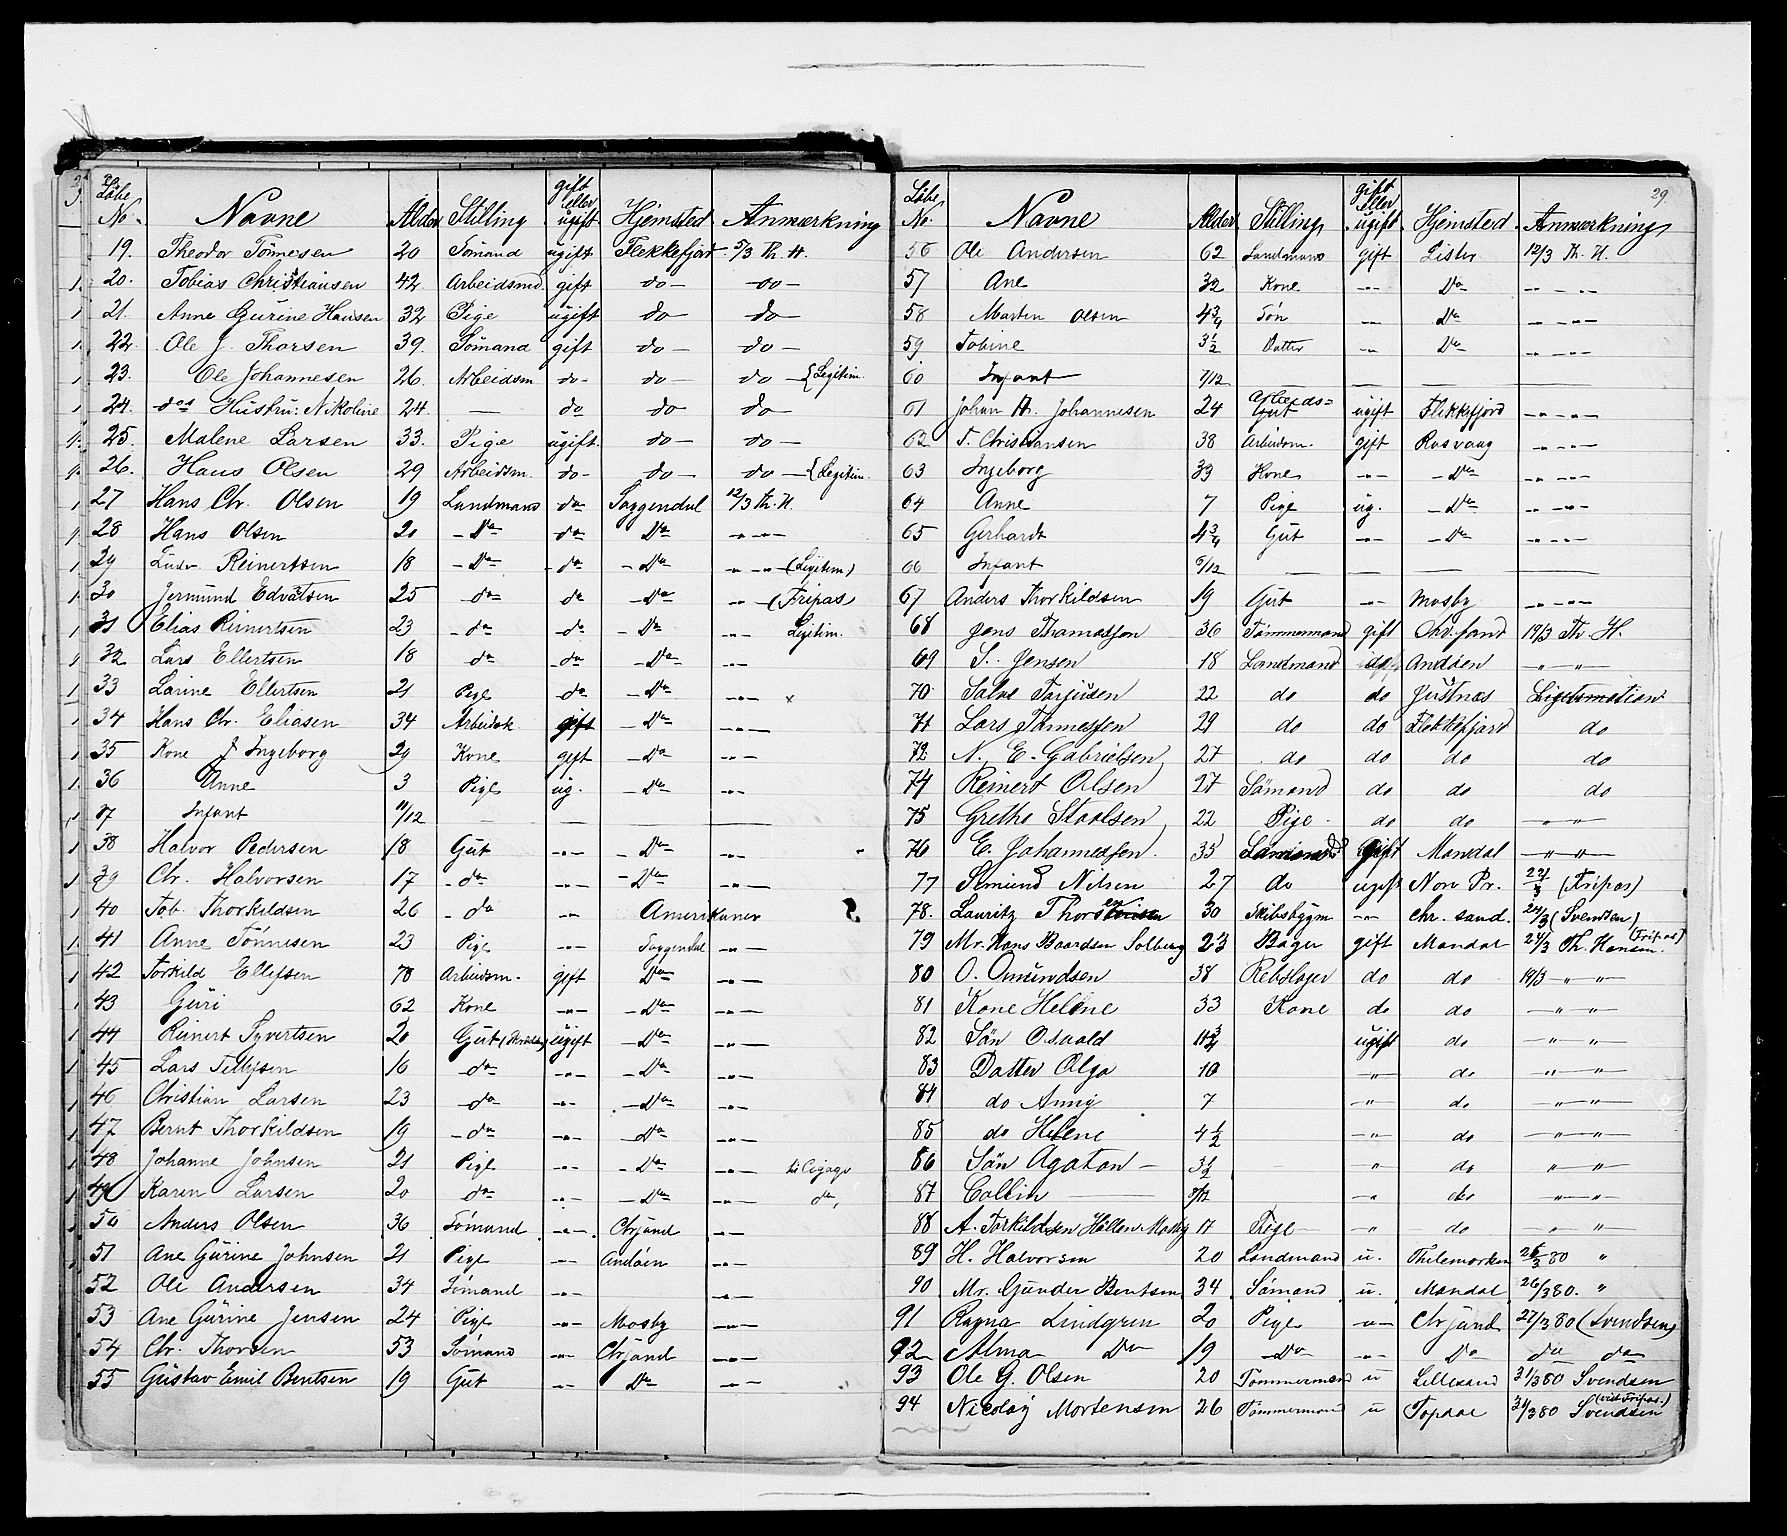 Løbe No. Navne Alder Stilling gift eller ugift Hjemsted Anmærkning
19. Theodor Tönnesen 20 Sömand ugift Flekkefjord 5/3 Th. H.
20. Tobias Christiansen 42 Arbeidsmd. gift do — do —
21. Anne Gurine Hansen 32 Pige ugift do do
22. Ole J. Thorsen 39. Sömand gift do — do —
23. Ole Johannesen 26. Arbeidsm. do — do — do — (Legitim.
24. dos Hustru: Nikoline 24. — do do do —
25. Malene Larsen 33. Pige ugift. do — do —
26. Hans Olsen 29 Arbeidsm. do — do — do — (Legitim.
27 Hans Chr. Olsen 19 Landmand do Soggendal 12/3 Th. H.
28 Hans Olsen 20 — Do do Do — " — " —
29 Ludv. Reinertsen 18 — Do — do — Do — " — " — (Legitim)
30 Jermund Edvatsen 25 do do — Do — " — (Fripas)
31 Elias Reinertsen 23 — do — do — Do — " — Legitim.
32 Lars Ellertsen 18 do do — Do — " —
33 Larine Ellertsen 21 Pige do — Do — " — x
34 Hans Chr. Eliasen 34 Arbeidsk. gift — Do — " —
35 Kone J Ingeborg 29 Kone gift — Do — " —
36 Anne 3 Pige ug. — Do — " —
37 Infant 11/12 — — — —
38 Halvor Pedersen 18 Gut — " — — Do — " —
39 Chr. Halvorsen 17 — do — " — — Do — " —
40 Tob. Thorkildsen 26 — do — " — Amerikaner
41 Anne Tönnesen 23 Pige — " — Soggendal — " —
42 Torkild Ellefsen 70 Arbeidsm. gift Do — " —
43 Guri 62 Kone — " — — Do — " —
44 Reinert Syvertsen 20 Gut ugift — Do — " —
45 Lars Tellefsen 16 — do — " — — Do — " —
46 Christian Larsen 23 — do — " — — Do — " —
47 Bernt Thorkildsen 19 — do — " — — Do — " —
48 Johanne Johnsen 21 Pige — " — — Do — " —
49 Karen Larsen 20 do — " — — Do — " — do
50 Anders Olsen 36 Sömand — " — Chrsand — " —
51 Ane Gurine Johnsen 21 Pige — " — Andöen — " —
52 Ole Andersen 34 Sömand — " — — " —
53 Ane Gurine Jensen 24 Pige — " — Mosby — " —
54 Chr. Thorsen 53 Sömand — " — Chrsand — " —
55 Gustav Emil Bentsen 19 Gut — " — Do — " —
29
Løbe No. Navne Alder Stilling gift eller ugift Hjemsted Anmærkning
56 Ole Andersen 62 Landmand gift Lister 12/3 Th. H.
57 Ane 32 Kone — " — Do — " — " —
58 Marten Olsen 4 3/4 Sön — " — Do — " — " —
59 Tobine 3 1/2 Datter — " — Do — " — " —
60 Infant 7/12 — — — —
61 Johan A. Johannesen 24 Arbeids= Gut ugift Flekkefjord — " — " —
62 T. Christiansen 38 Arbeidsm. gift Rosvaag — " — " —
63 Ingeborg 33 Kone — " — — Do — " — " —
64 Anne 7 Pige ug. — Do — " — " —
65 Gerhardt 4 3/4 Gut — " — — Do — " — " —
66 Infant 6/12 — — — —
67 Anders Thorkildsen 19 Gut — " — Mosby — " — " —
68 Jens Thomassen 36 Tömmermand gift Chr. sand 19/3 Th. H.
69 S. Jensen 18 Landmand do Andöen — " — " —
70 Salve Tarjusen 22 do do Justnæs Legitimation
71 Lars Tönnessen 29 do do Flekkefjord do
72. N. E. Gabrielsen 27 do do do do
74 Reinert Olsen 27 Sömand do do do
75 Grethe Staalsen 22 Pige do do — " — " —
76 E. Johannessen. 35 Landmand gift Mandal — " — " —
77 Semund Nilsen 27 do ugift Nor. Pr. 22/3 (Fripas)
78. Lauritz Thorsen 30 Skibsbygm — " — Chr. sand. 24/3 (Svendsen)
79 Mr. Hans Baardsen Solberg 23 Bager gift Mandal 24/3 Th. Hansen. (Fripas)
80 O. Omundsen 38 Rebslager do do 19/3 — " — " —
81 Kone Helene 33 Kone do do — " — " —
82 Sön Osvald 11 3/4 ugift do — " — " —
83 Datter Olga 10 — " — do — " — " —
84 do Anny 7 — " — do — " — " —
85 do Helene 4 1/2 — " — do — " — " —
86 Sön Agaton — 3 1/2 — " — do — " — " —
87 Collin — — " — do — " — " —
88 A. Torkildsen 17 Pige — " — do — " — " —
89 H. Halvorsen 20 Landmand u. Thelemarken 26/3 80 "
90 Mr. Gunder Bentsen 34 Sömand u. Mandal 26/3 80. "
91 Ragna Lindgren 20 Pige — " — Chrsand 27/3 80 (Svendsen)
92 Alma Do 19 — Do — — " — Do do do
93 Ole G. Olsen 20 Tömmermand u Lillesand 31/3 80 Svendsen
94 Nicolay Mortensen 26 Tömmermand u Topdal 31/3 80 Svendsen (vist Fripas.)